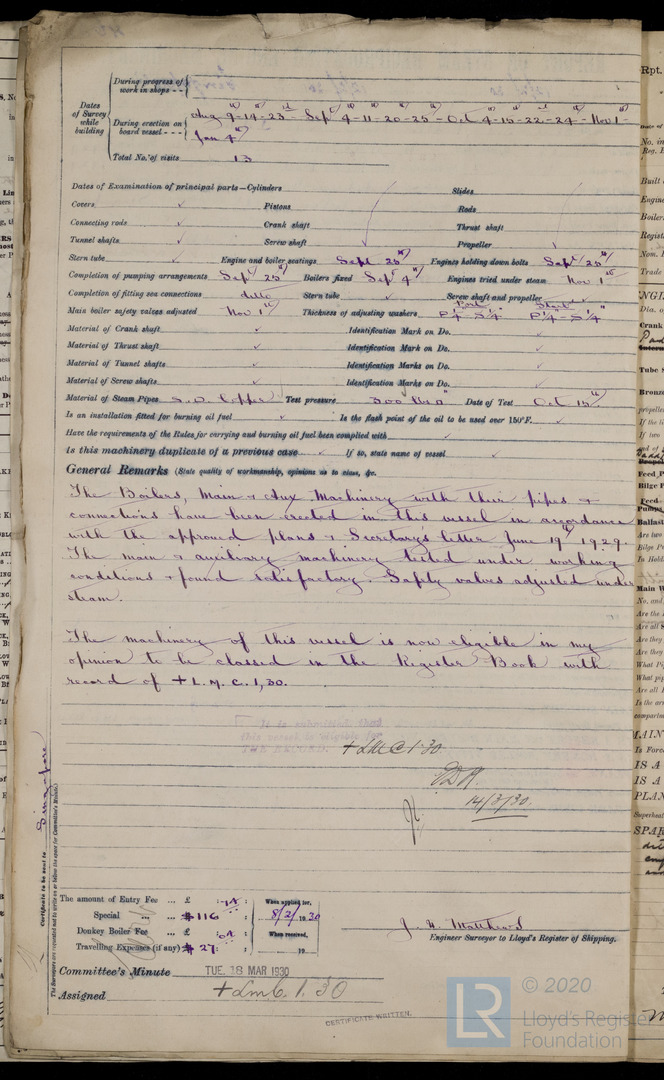 During progress of
work in shops - -
Dates
of Survey
while
building
During erection on
board vessel - - -
Aug 9-14-23- Sept 4-11-20-25- Oct 4-15-22-24- Nov 1-
Jan 4th
Total No. of visits 13
Dates of Examination of principal parts—Cylinders Slides
Covers Pistons Rods
Connecting rods Crank shaft Thrust shaft
Tunnel shafts Screw shaft Propeller
Stern tube Engine and boiler seatings Sept. 25th Engines holding down bolts Sept 25th
Completion of pumping arrangements Sept 25th Boilers fixed Sept 4th Engines tried under steam Nov 1st
Completion of fitting sea connections ditto Stern tube Screw shaft and propeller
Main boiler safety valves adjusted Nov 1st Thickness of adjusting washers Port P¼"-S¼" Starb P¼"-S¼"
Material of Crank shaft Identification Mark on Do.
Material of Thrust shaft Identification Mark on Do.
Material of Tunnel shafts Identification Marks on Do.
Material of Screw shafts Identification Marks on Do.
Material of Steam Pipes S.D. Copper Test pressure 300 lbs □" Date of Test Oct 15th
Is an installation fitted for burning oil fuel Is the flash point of the oil to be used over 150°F.
Have the requirements of the Rules for carrying and burning oil fuel been complied with
Is this machinery duplicate of a previous case If so, state name of vessel
General Remarks (State quality of workmanship, opinions as to class, &c.
The Boilers, Main & Aux Machinery with their pipes &
connections have been erected in this vessel in accordance
with the approved plans & Secretary's letter June 19th 1929.
The main & auxiliary machinery tested under working
conditions & found satisfactory. Safety valves adjusted under
steam.
The machinery of this vessel is now eligible in my
opinion to be classed in the Register Book with
record of + L.M.C. 1,30.
It is submitted that
this vessel is eligible for
THE RECORD. + LMC 1.30
14/3/30.
Certificate to be sent to Singapore
The Surveyors are requested not to write on or below the space for Committee's Minute.
The amount of Entry Fee ... £ : :
Special ... ... $116 : :
Donkey Boiler Fee ... £ : :
Travelling Expenses (if any) $ 27 : :
When applied for,
8/2/1930
When received,
19
J. H. Matthews
Engineer Surveyor to Lloyd's Register of Shipping.
Committee's Minute TUE. 18 MAR 1930
Assigned + LMC 1.30
CERTIFICATE WRITTEN.
© 2020
LR Lloyd's Register
Foundation